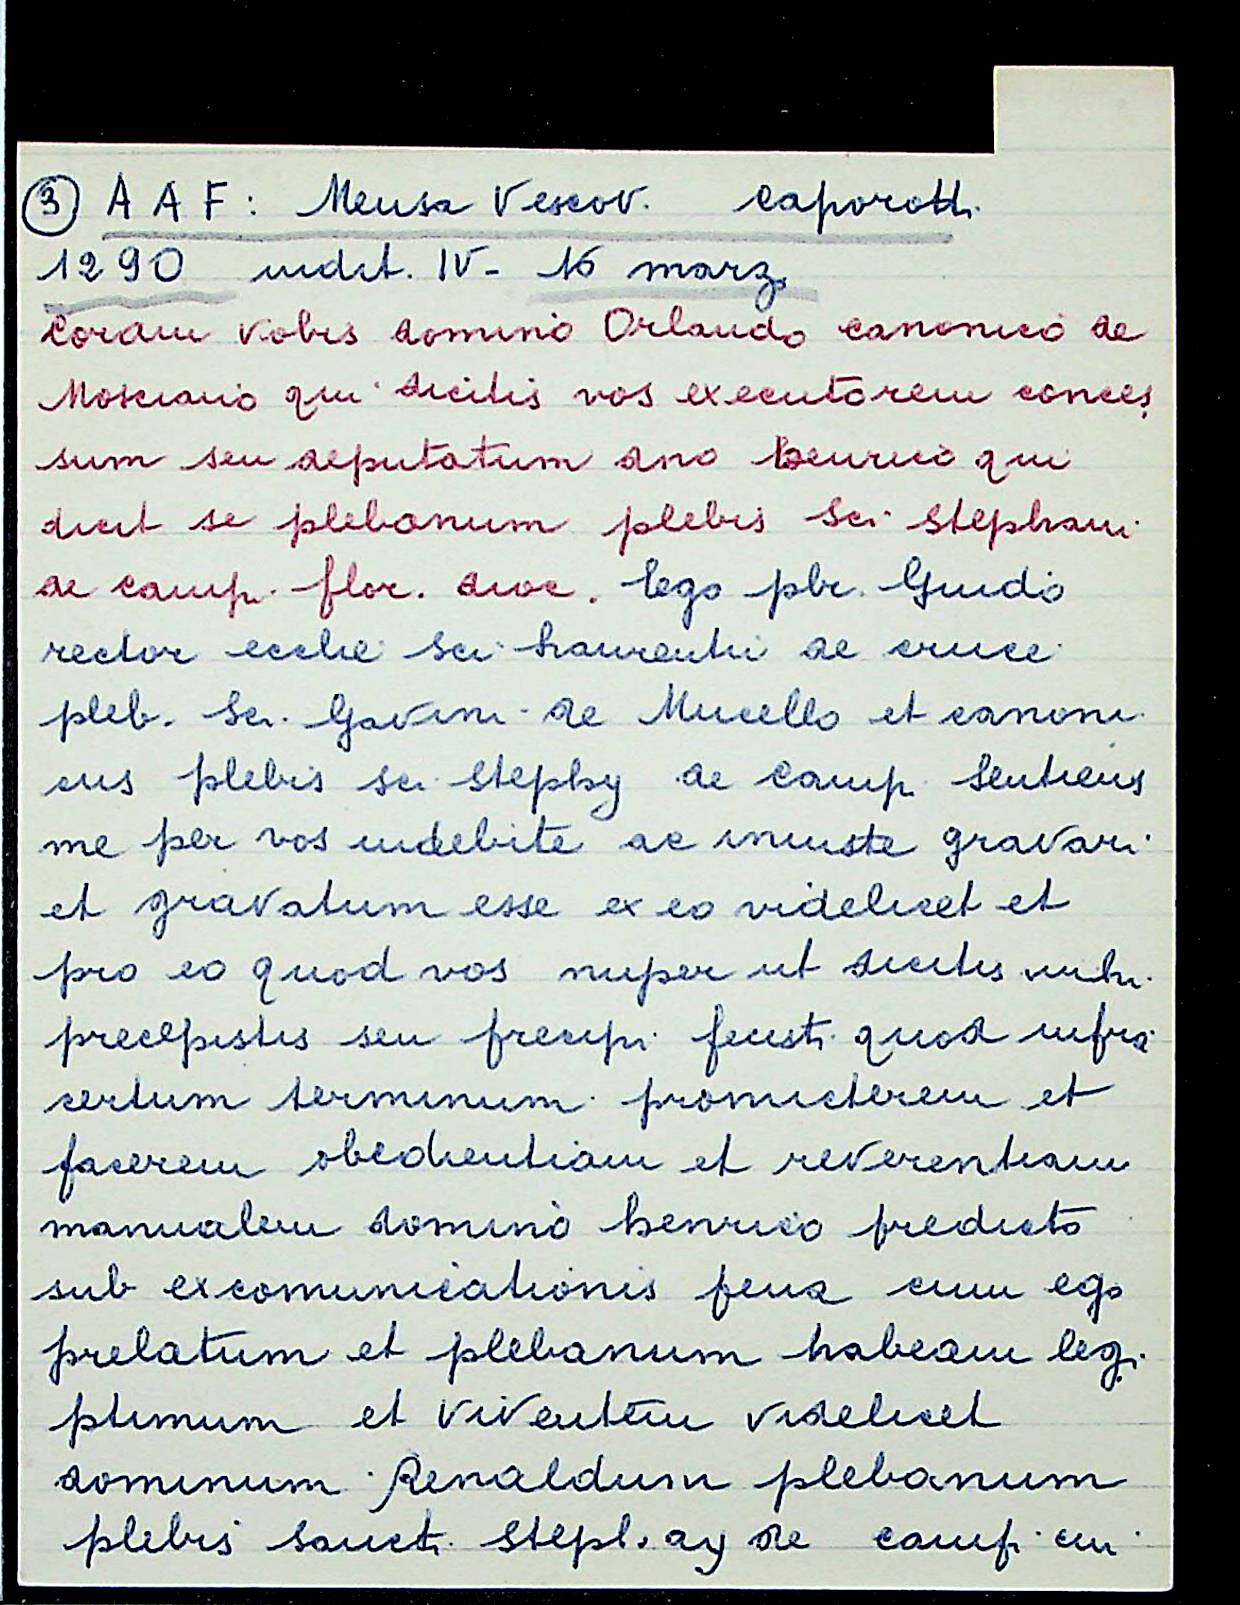 3 A A F: Mensa Vescov. Caporotti
1290 indit. IV - 16 marz
Coram vobis domino Orlando canonico de
Mosciano qui dicitis vos executorem conces
sum seu deputatum dno Benrico qui
dicit se plebanum plebis Sci Stephani
de camp. flor. dioc. Ego pbr. Guido
rector ecclie Sci Laurentii de cruce
pleb. Sci. Gavini de Mucello et canoni
cus plebis sci stephy de camp. Sentiens
me per vos indebite ac iniuste gravari
et gravatum esse ex eo videlicet et
pro eo quod vos nuper ut dicitis mihi
precepistis seu precipi fecisti quod infra
certum terminum promicterem et
facerem obedientiam et reverentiam
manualem domino henrico predicto
sub excomunicationis pena cum ego
prelatum et plebanum habeam legi
ptimum et viventem videlicet
dominum Renaldum plebanum
plebis sancti steph. ay de camp. cui